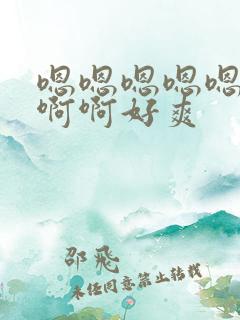 嗯嗯嗯嗯嗯
啊啊好爽
邵飛
未经同意禁止转载